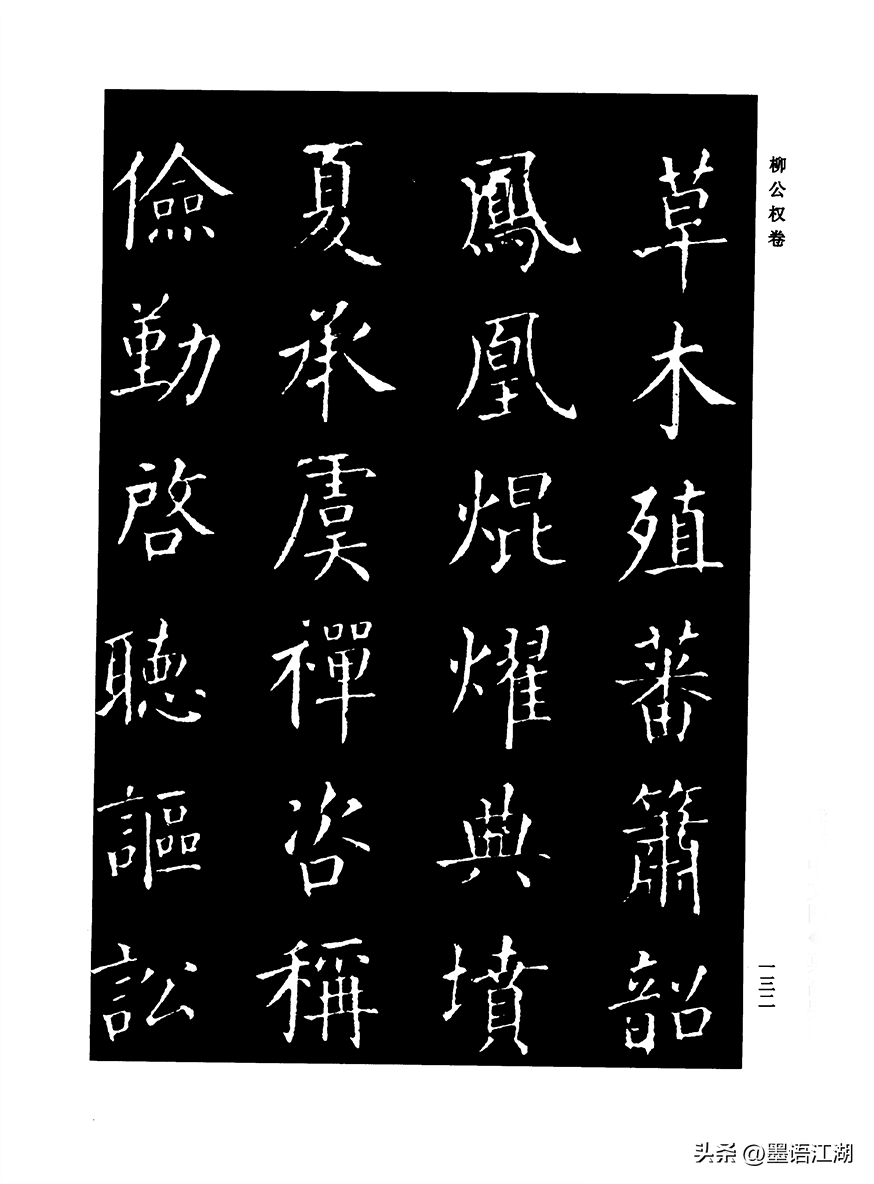 柳公权卷
草木殖蕃簫韶
鳳凰焜燿典墳
夏承虞禪咨稱
儉勤啓聽謳訟
一三二
头条 @墨语江湖